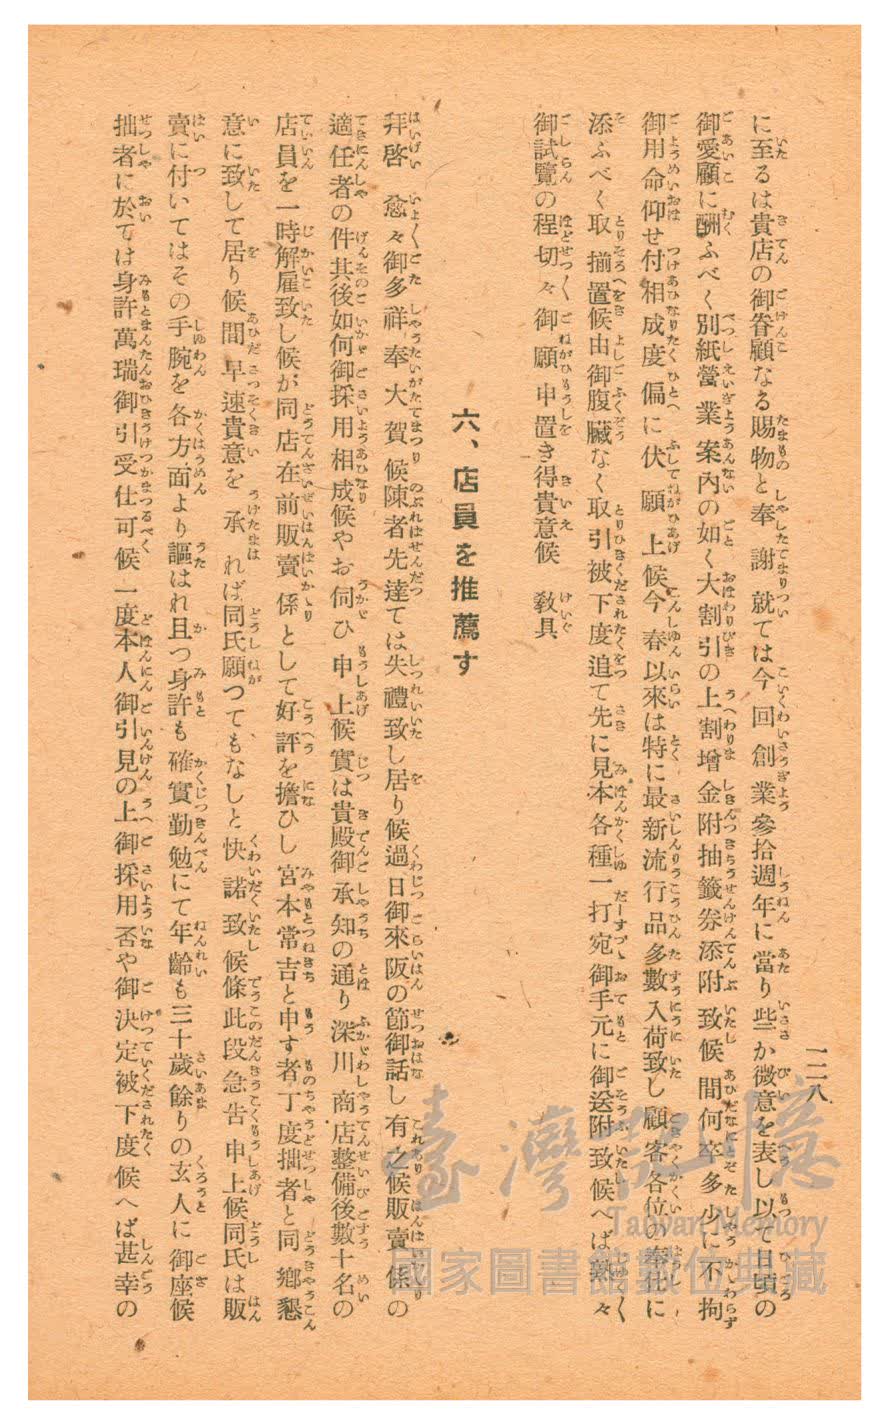 一二八
に至るは貴店の御眷顧なる賜物と奉謝就ては今回創業參拾週年に當り些か微意を表し以て日頃の
御愛顧に酬ふべく別紙營業案內の如く大割引の上割增金附抽籤券添附致候間何卒多少に不拘
御用命仰せ付相成度偏に伏願上候今春以來は特に最新流行品多數入荷致し顧客各位の奉仕に
添ふべく取揃置候由御腹臟なく取引被下度追て先に見本各種一打宛御手元に御送附致候へば熟々
御試覽の程切々御願申置き得貴意候 敎具
六、店員を推薦す
拜啓 愈々御多祥奉大賀候陳者先達ては失禮致し居り候過日御來阪の節御話し有之候販賣係の
適任者の件其後如何御採用相成候やお伺ひ申上候實は貴殿御承知の通り深川商店整備後數十名の
店員を一時解雇致し候が同店在前販賣係として好評を擔ひし宮本常吉と申す者丁度拙者と同鄕懇
意に致して居り候間早速貴意を承れば同氏願つてもなしと快諾致候條此段急告申上候同氏は販
賣に付いてはその手腕を各方面より謳はれ且つ身許も確實勤勉にて年齡も三十歲餘りの玄人に御座候
拙者に於ては身許萬瑞御引受仕可候一度本人御引見の上御採用否や御決定被下度候へば甚幸の
臺灣記憶
Taiwan Memory
國家圖書館數位典藏